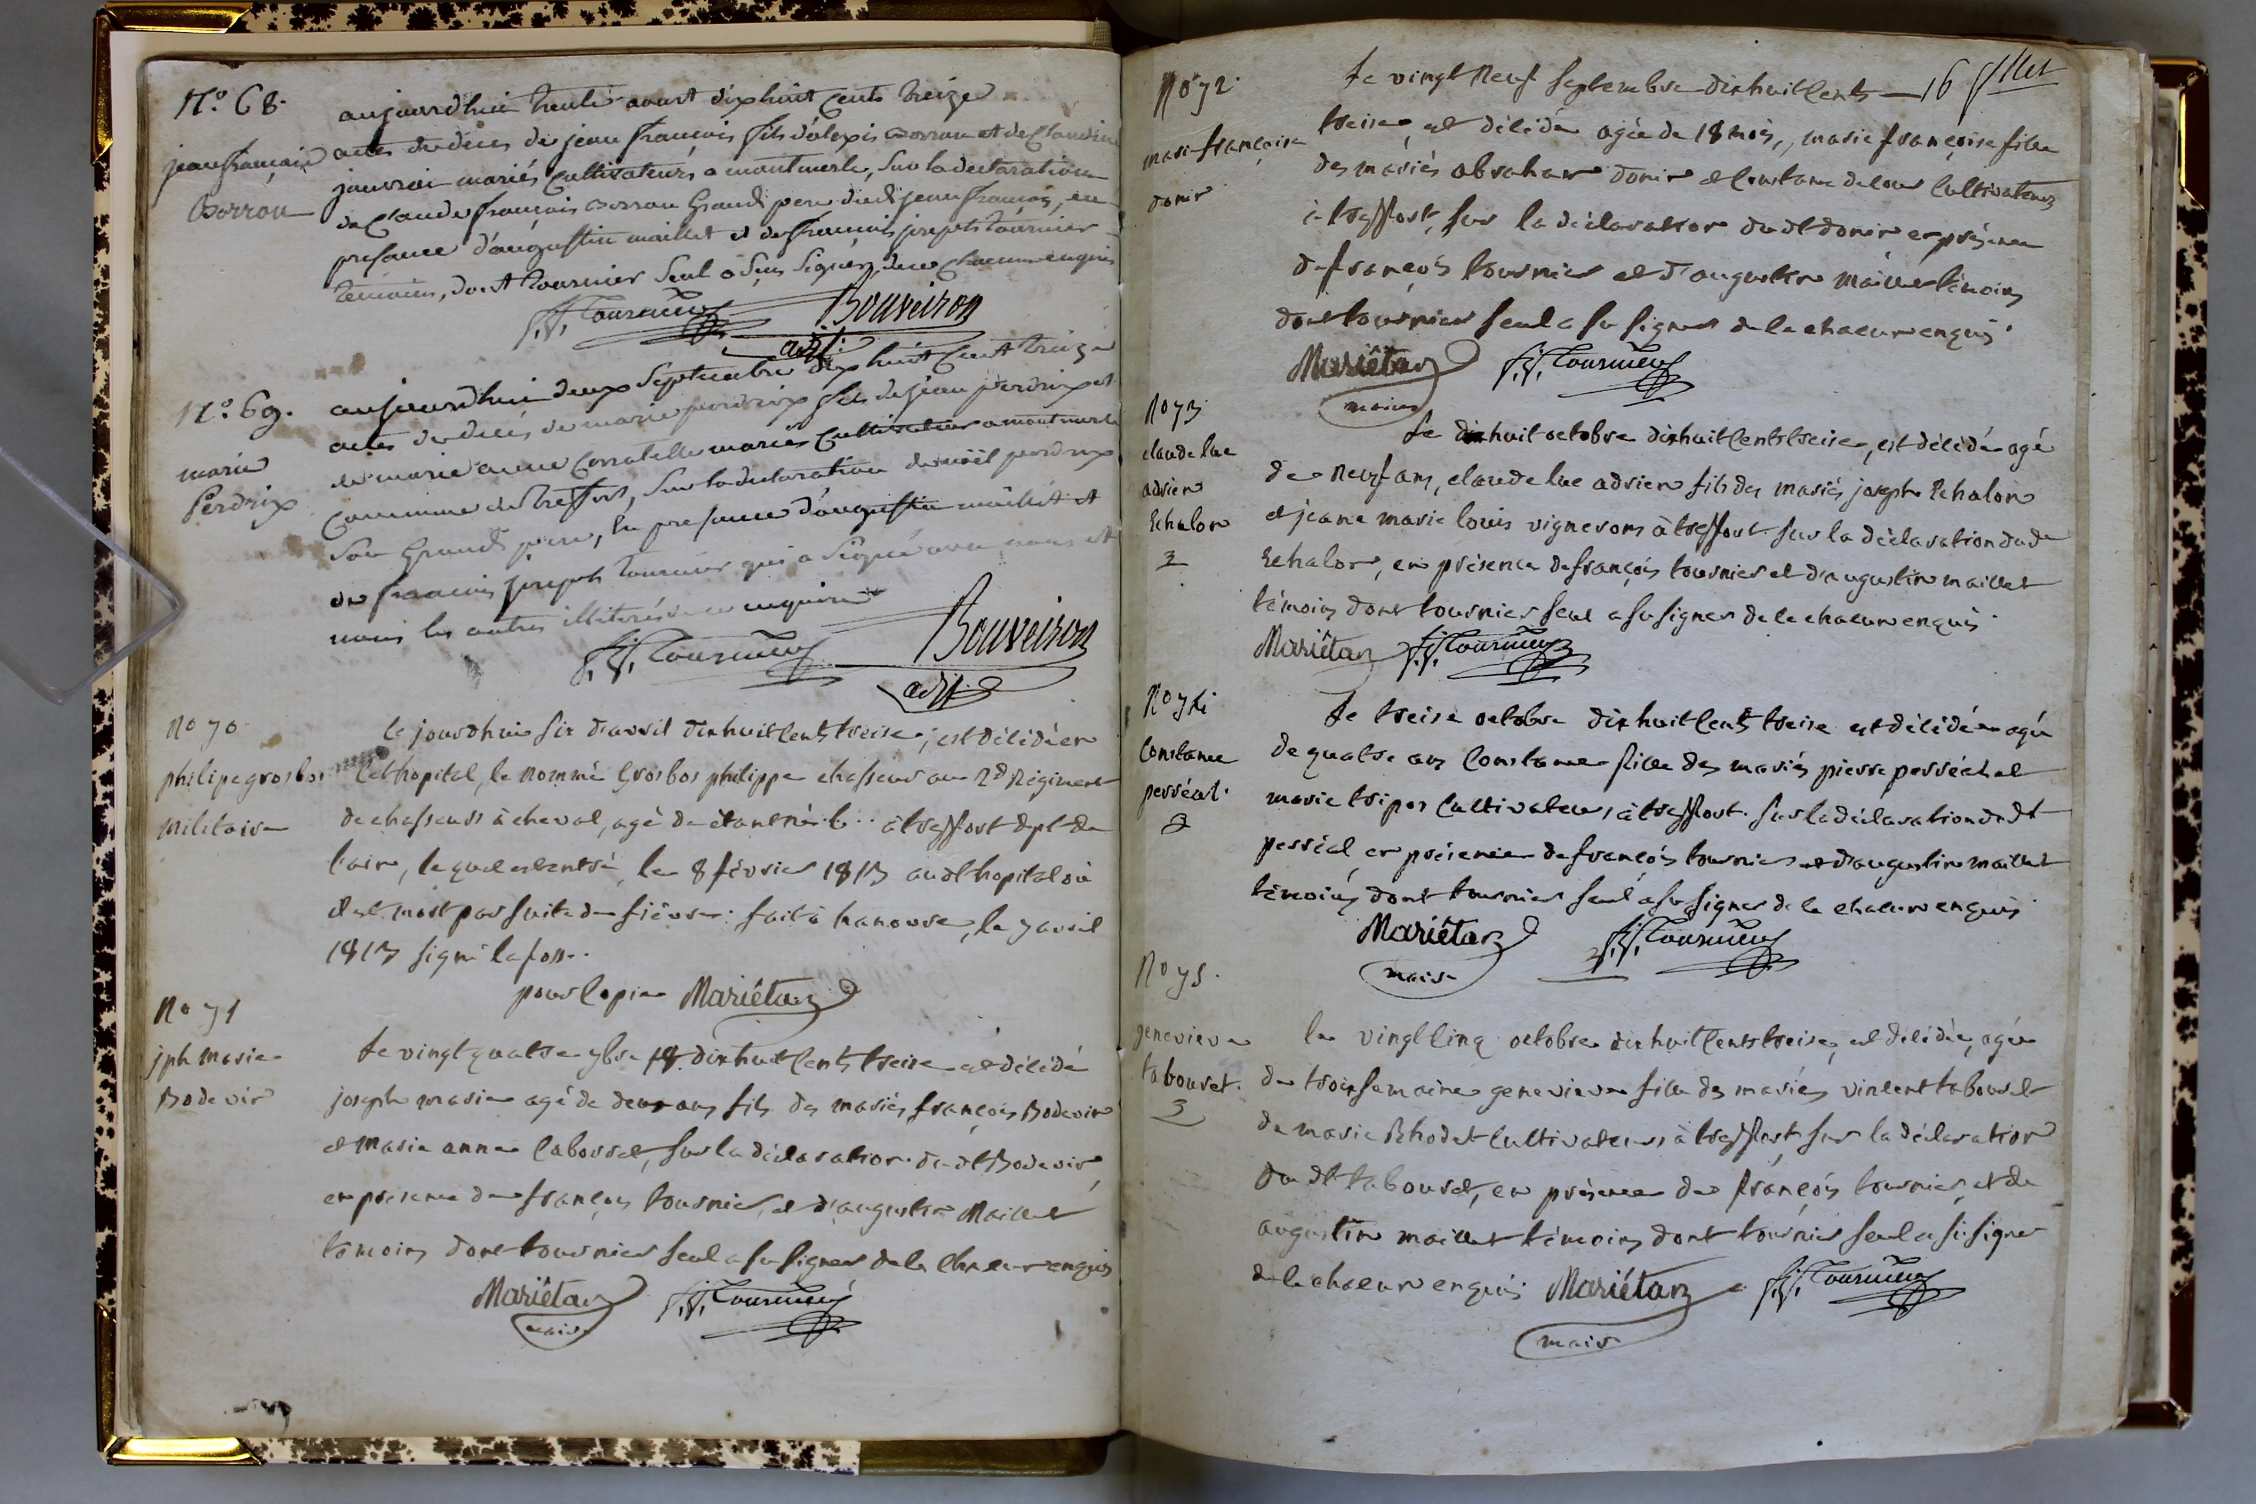 N.º 68.
jean françois
Borron
aujourdhui trente aoust dix huit cents treize
acte de deces de jean françois fils d'alexis Borron et de Claudine
mariés cultivateurs a montmerle, sur la declaration
de Claude françois Borron Grand pere dudi jean françois, en
presance d'augustin maillet et de françois joseph tournier
temoins, dont tournier seul a seu signer, de ce enquis
f. j. Tournier Bouveiron
adjt.
N.º 69.
marie
Perdrix
aujourdhui deux Septembre dix huit Cent treize
acte de décés de marie perdrix fils de jean perdrix et
de marie anne mariés Cultivateur a montmerle
Commune de Treffort, sur la declaration de noël perdrix
son Grand pere, En presance d'augustin maillet et
de francois joseph tournier qui a signé avec nous et
nous les autres illiteré de ce enquis
f. j. Tournier Bouveiron
adjt
No 70
philipe grosbos
militaire
Ce jourdhui six d'avril dixhuit cents treise, est décédé en
cet hopital, le nommé Grosbos philippe chasseur au 2d Régiment
de chasseurs à cheval, agé de étant né l .. à treffort dpt de
l'ain, lequel est entré le 8 février 1813 audt hopital où
il est mort par suite de fièvre: fait à hanovre, le 7 avril
1813 signé lafosse.
pour copie Mariétan
No 71
jph marie
Bodevin
Le vingt quatre 7bre dixhuit cents treise est décédé
joseph marie agé de deux ans fils des mariés françois Bodevin
et Marie anne Cabouret, sur la déclaration dudt Bodevin,
en présence de françois tournier, et d'augustin Maillet
témoins dont tournier seul a su signer de ce chacun enquis
Mariétan f. j. Tournier
maire
16 fllet
No 72
marie françoise
donin
Le vingt Neuf Septembre dixhuit cents
treise, est décédée agée de 18 mois, marie françoise fille
des mariés abraham donin et Constance delour Cultivateurs
à treffort, sur la déclaration dudt donin en présence
de françois tournier et d'augustin Maillet témoins
dont tournier seul a su signer de ce chacun enquis.
Mariétan f. j. Tournier
maire
No 73
claude luc
adrien
Echalon
3
Le dixhuit octobre dixhuit cents treise, est décédé agé
de Neuf ans, claude luc adrien fils des mariés joseph Echalon
et jeane marie louis vignerons à treffort sur la déclaration dudt
Echalon, en présence de françois tournier et d'augustin maillet
témoins dont tournier seul a su signer de ce chacun enquis
Mariétan f. j. Tournier
No 74
Constance
perréal
3
Le treise octobre dixhuit cents treise est décédée agée
de quatre ans Constance fille des mariés pierre perréal et
marie tripoz Cultivateurs à treffort. sur la déclaration dudt
perréal en présence de françois tournier et d'augustin maillet
témoins dont tournier seul a su signer de ce chacun enquis
Mariétan f. j. Tournier
maire
No 75.
genevieve
tabouret.
3
Le vingt cinq octobre dixhuit cents treise, est décédée, agée
de trois semaines genevieve fille des mariés vincent tabouret
de marie Rhodet Cultivateurs à treffort, sur la déclaration
dudt tabouret, en présence de françois tournier, et de
augustin maillet témoins dont tournier seul a su signer
de ce chacun enquis Mariétan f. j. Tournier
maire